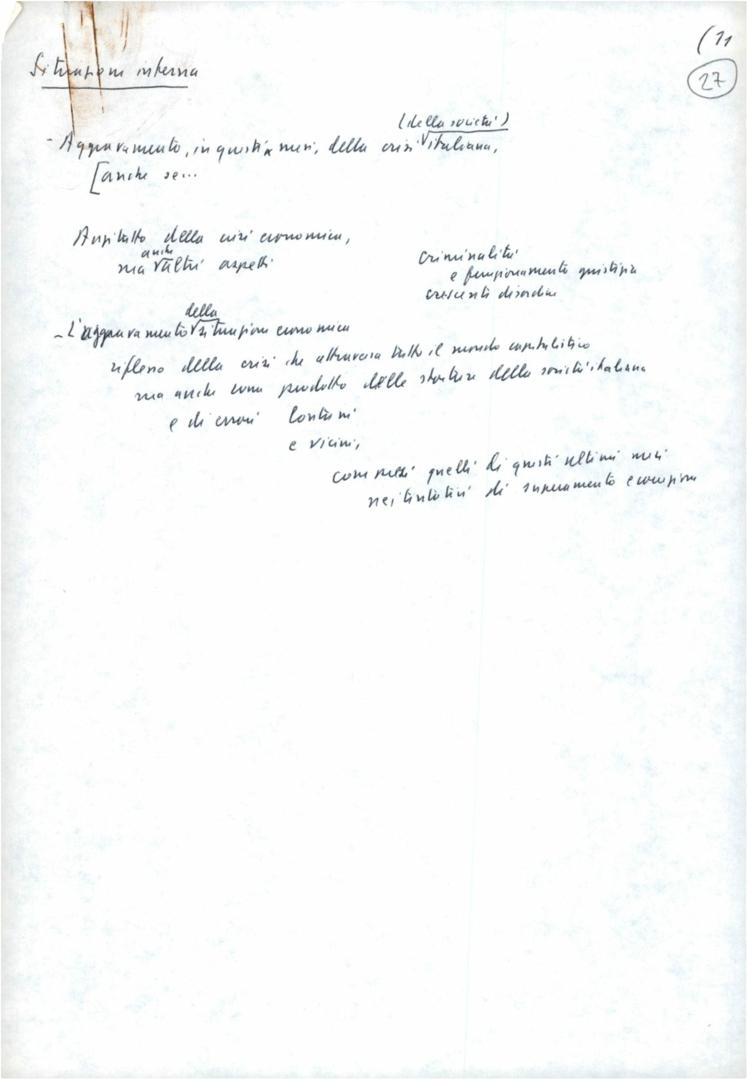 (11
27
Situazione interna
(della società)
- Aggravamento, in questi mesi, della crisi italiana,
[anche se...
Aspetto della crisi economica,
anche
ma altri aspetti
criminalità
e funzionamento giustizia
crescenti disordini
della
- L'aggravamento situazione economica
riflesso della crisi che attraversa tutto il mondo capitalistico
ma anche come prodotto delle storture della società italiana
e di errori lontani
e vicini,
compresi quelli di questi ultimi mesi
nei tentativi di superamento